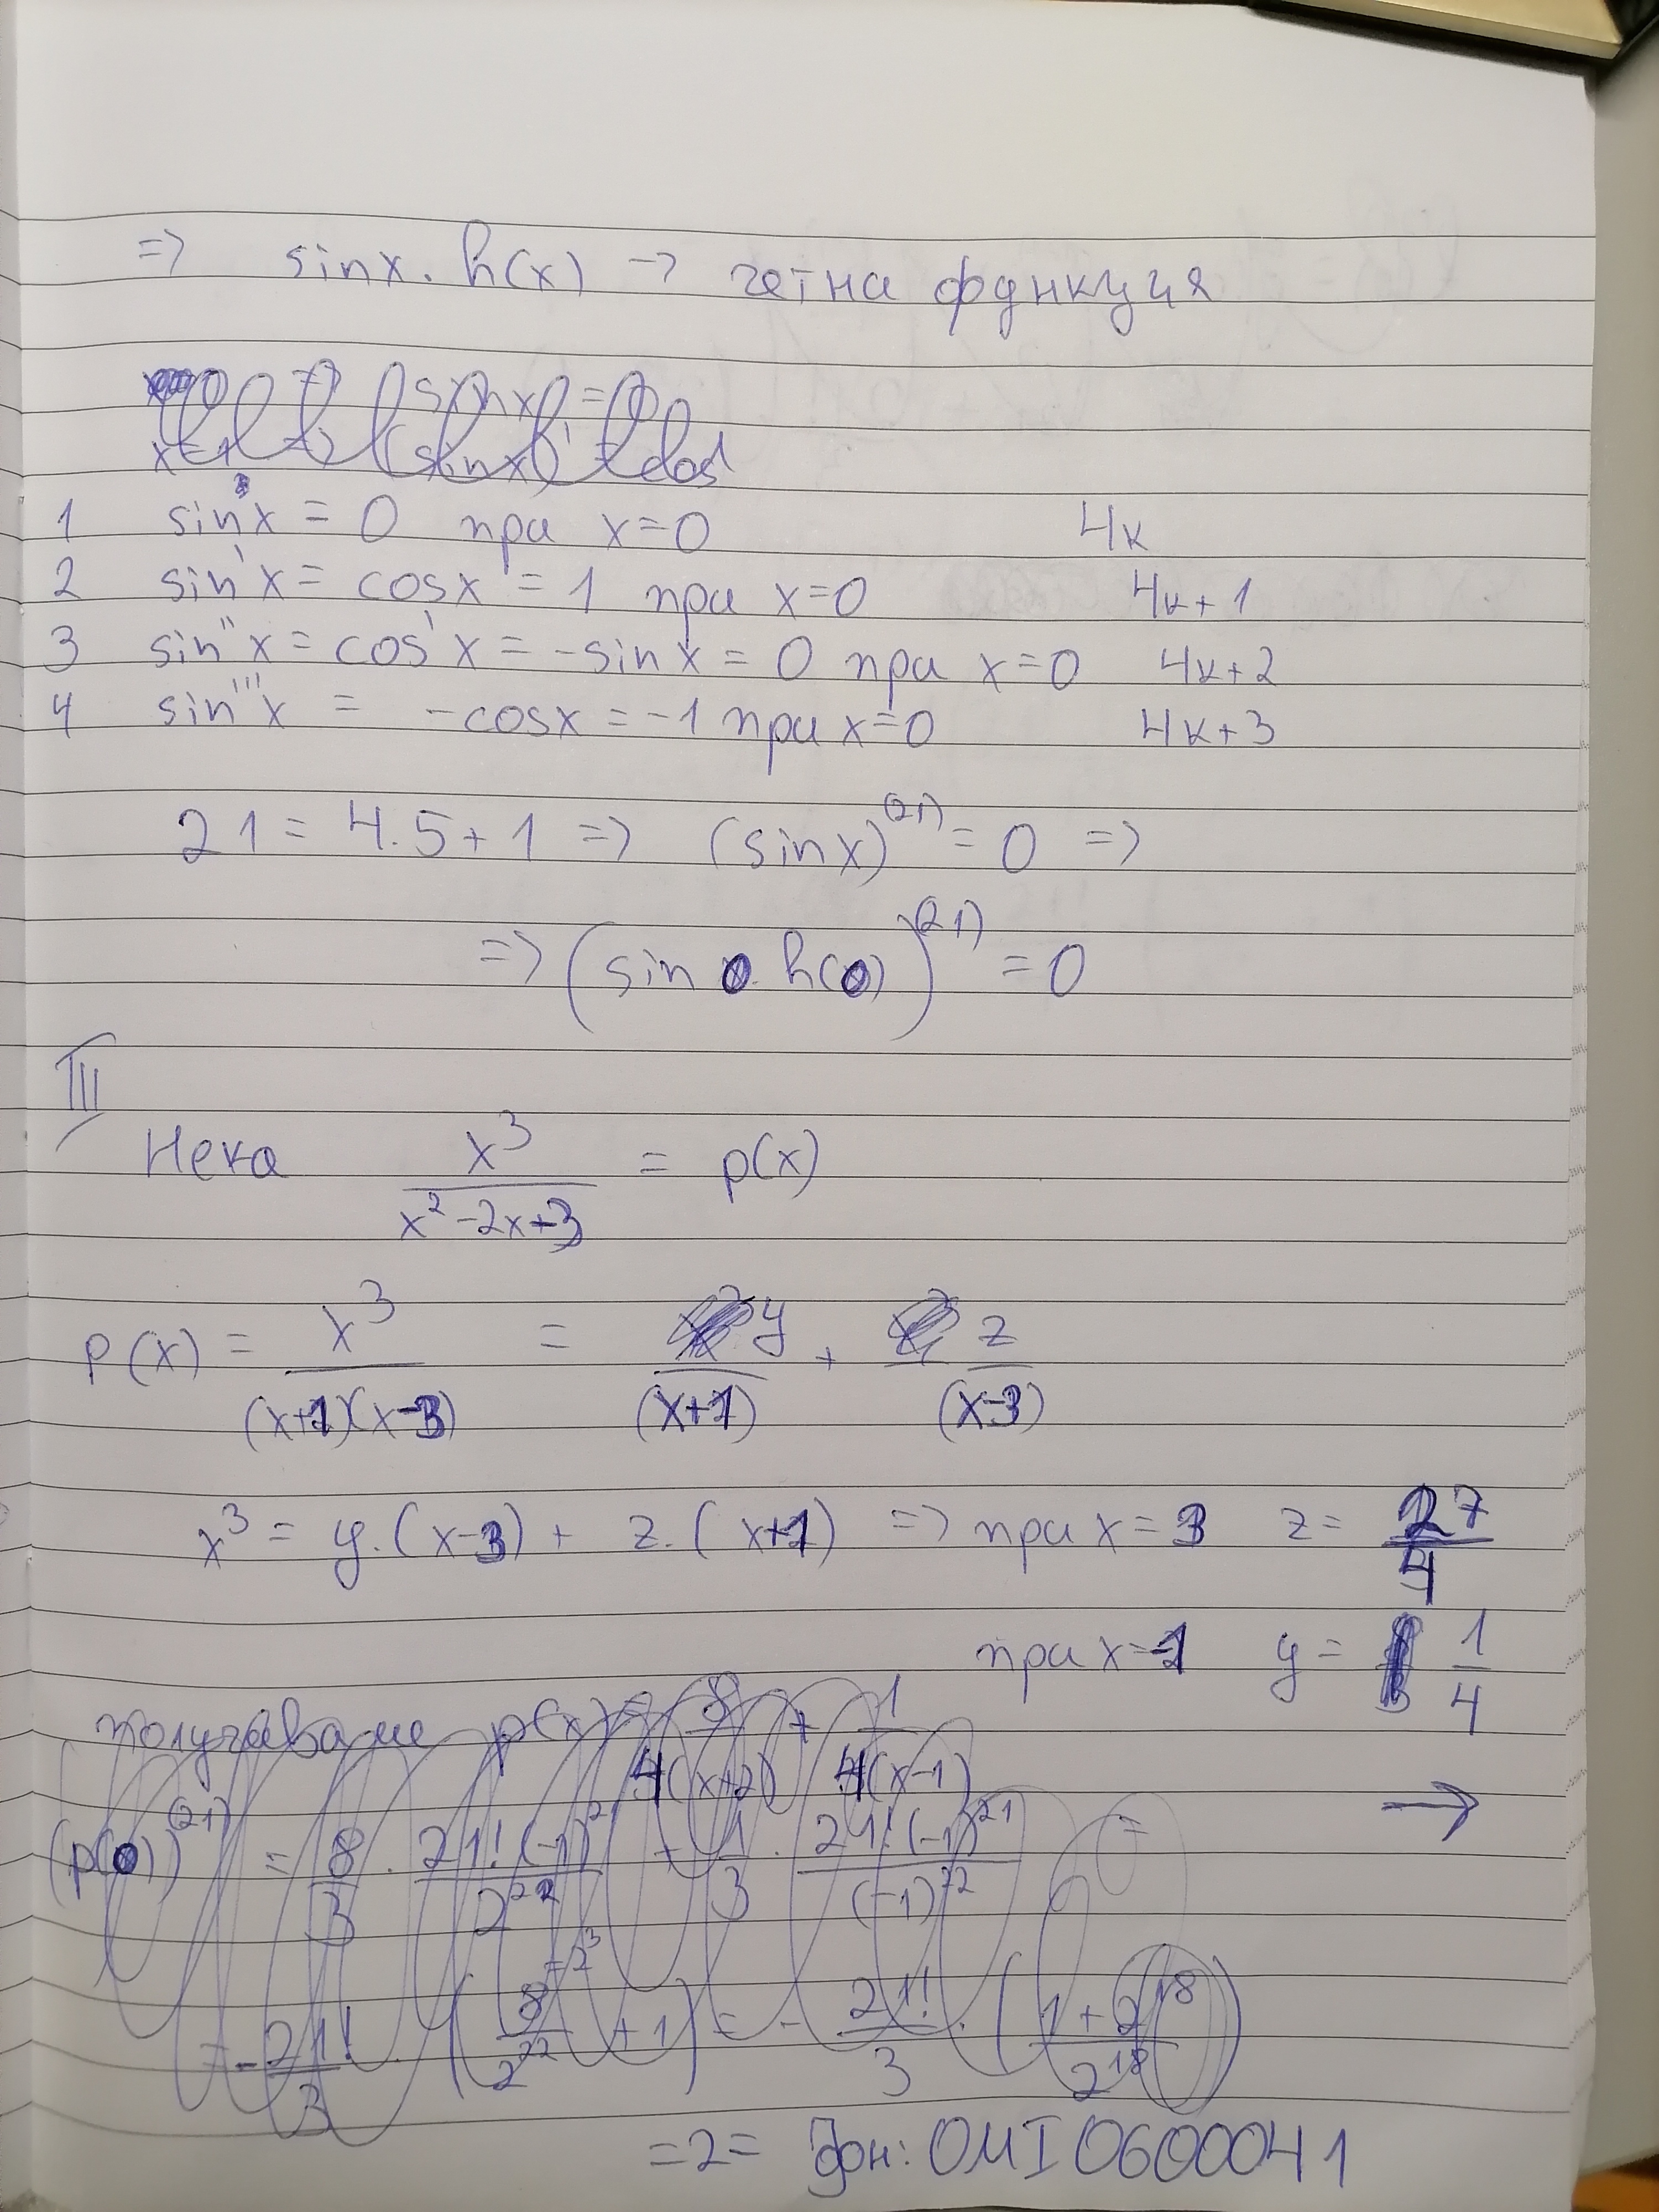 => sinx . h(x) -> четна фднкция
1 sinx = 0 при x=0 4k
2 sin'x = cosx = 1 при x=0 4k+1
3 sin''x = cos'x = -sinx = 0 при x=0 4k+2
4 sin'''x = -cosx = -1 при x=0 4k+3
21 = 4.5+1 => (sinx)^(21) = 0 =>
=> (sin 0. h(0))^(21) = 0
III
Нека x^3/(x^2-2x+3) = p(x)
p(x) = x^3/((x+1)(x-3)) = y/(x+1) + z/(x-3)
x^3 = y.(x-3) + z.(x+1) => при x=3 z= 27/4
при x=-1 y= 1/4
получаваме p(x) = 8/(4(x+2)) + 1/(4(x-1))
->
(p(0))^(21) = 8/3 . 21!(-1)^21/2^22 + 1/3 . 21!(-1)^21/(-1)^22 =
= -21!/3 . (8/2^22 + 1) = - 21!/3 . ((1+2^18)/2^18)
=2= фн: 0MI0600041